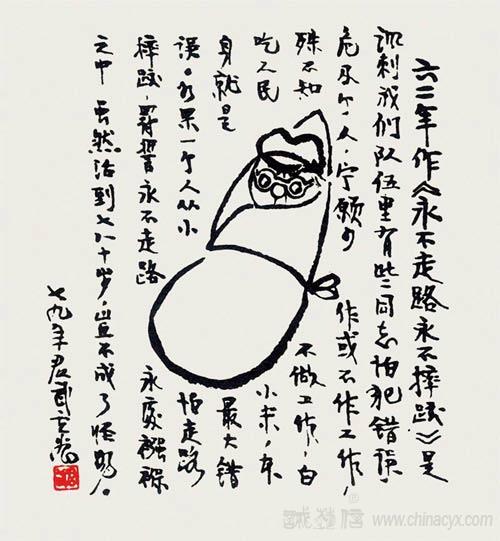 六二年作《永不走路永不摔跤》是
讽刺我们队伍里有些同志怕犯错误，
危及个人，宁愿少作或不作工作，
殊不知不做工作，白
吃人民小米，本
身就是最大错
误。如果一个人从小怕走路
摔跤，罚誓永不走路永处襁褓
之中虽然活到七八十岁，岂不成了怪物。
七九年君武重画
www.chinacyx.com